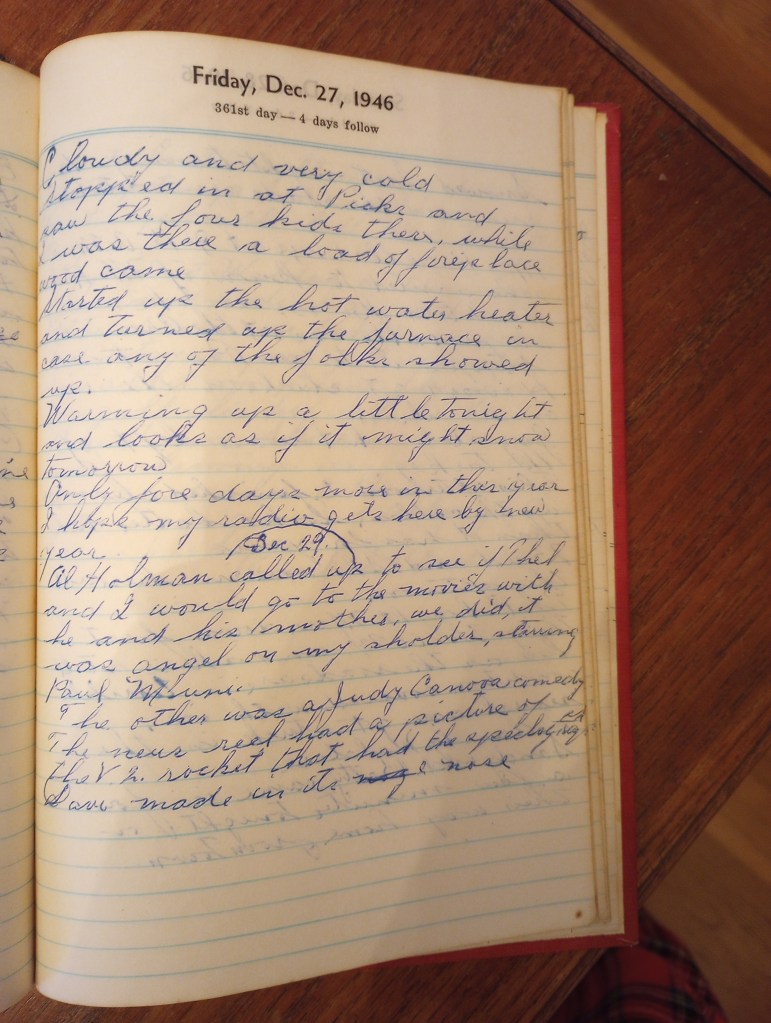 Friday, Dec. 27, 1946
361st day — 4 days follow
Cloudy and very cold
stopped in at Picks and
saw the four kids there, while
I was there a load of fireplace
wood came
Started up the hot water heater
and turned up the furnace in
case any of the folks showed
up.
Warming up a little tonight
and looks as if it might snow
tomorrow
Only fore days more in this year
I hope my radio gets here by new
year
Dec 29.
Al Holman called up to see if Thel
and I would go to the movies with
he and his mother, we did, it
was angel on my sholder, starring
Paul Muni.
The other was a Judy Canova comedy
The news reel had a picture of
the V 2. rocket that had the
Dave made in its nose